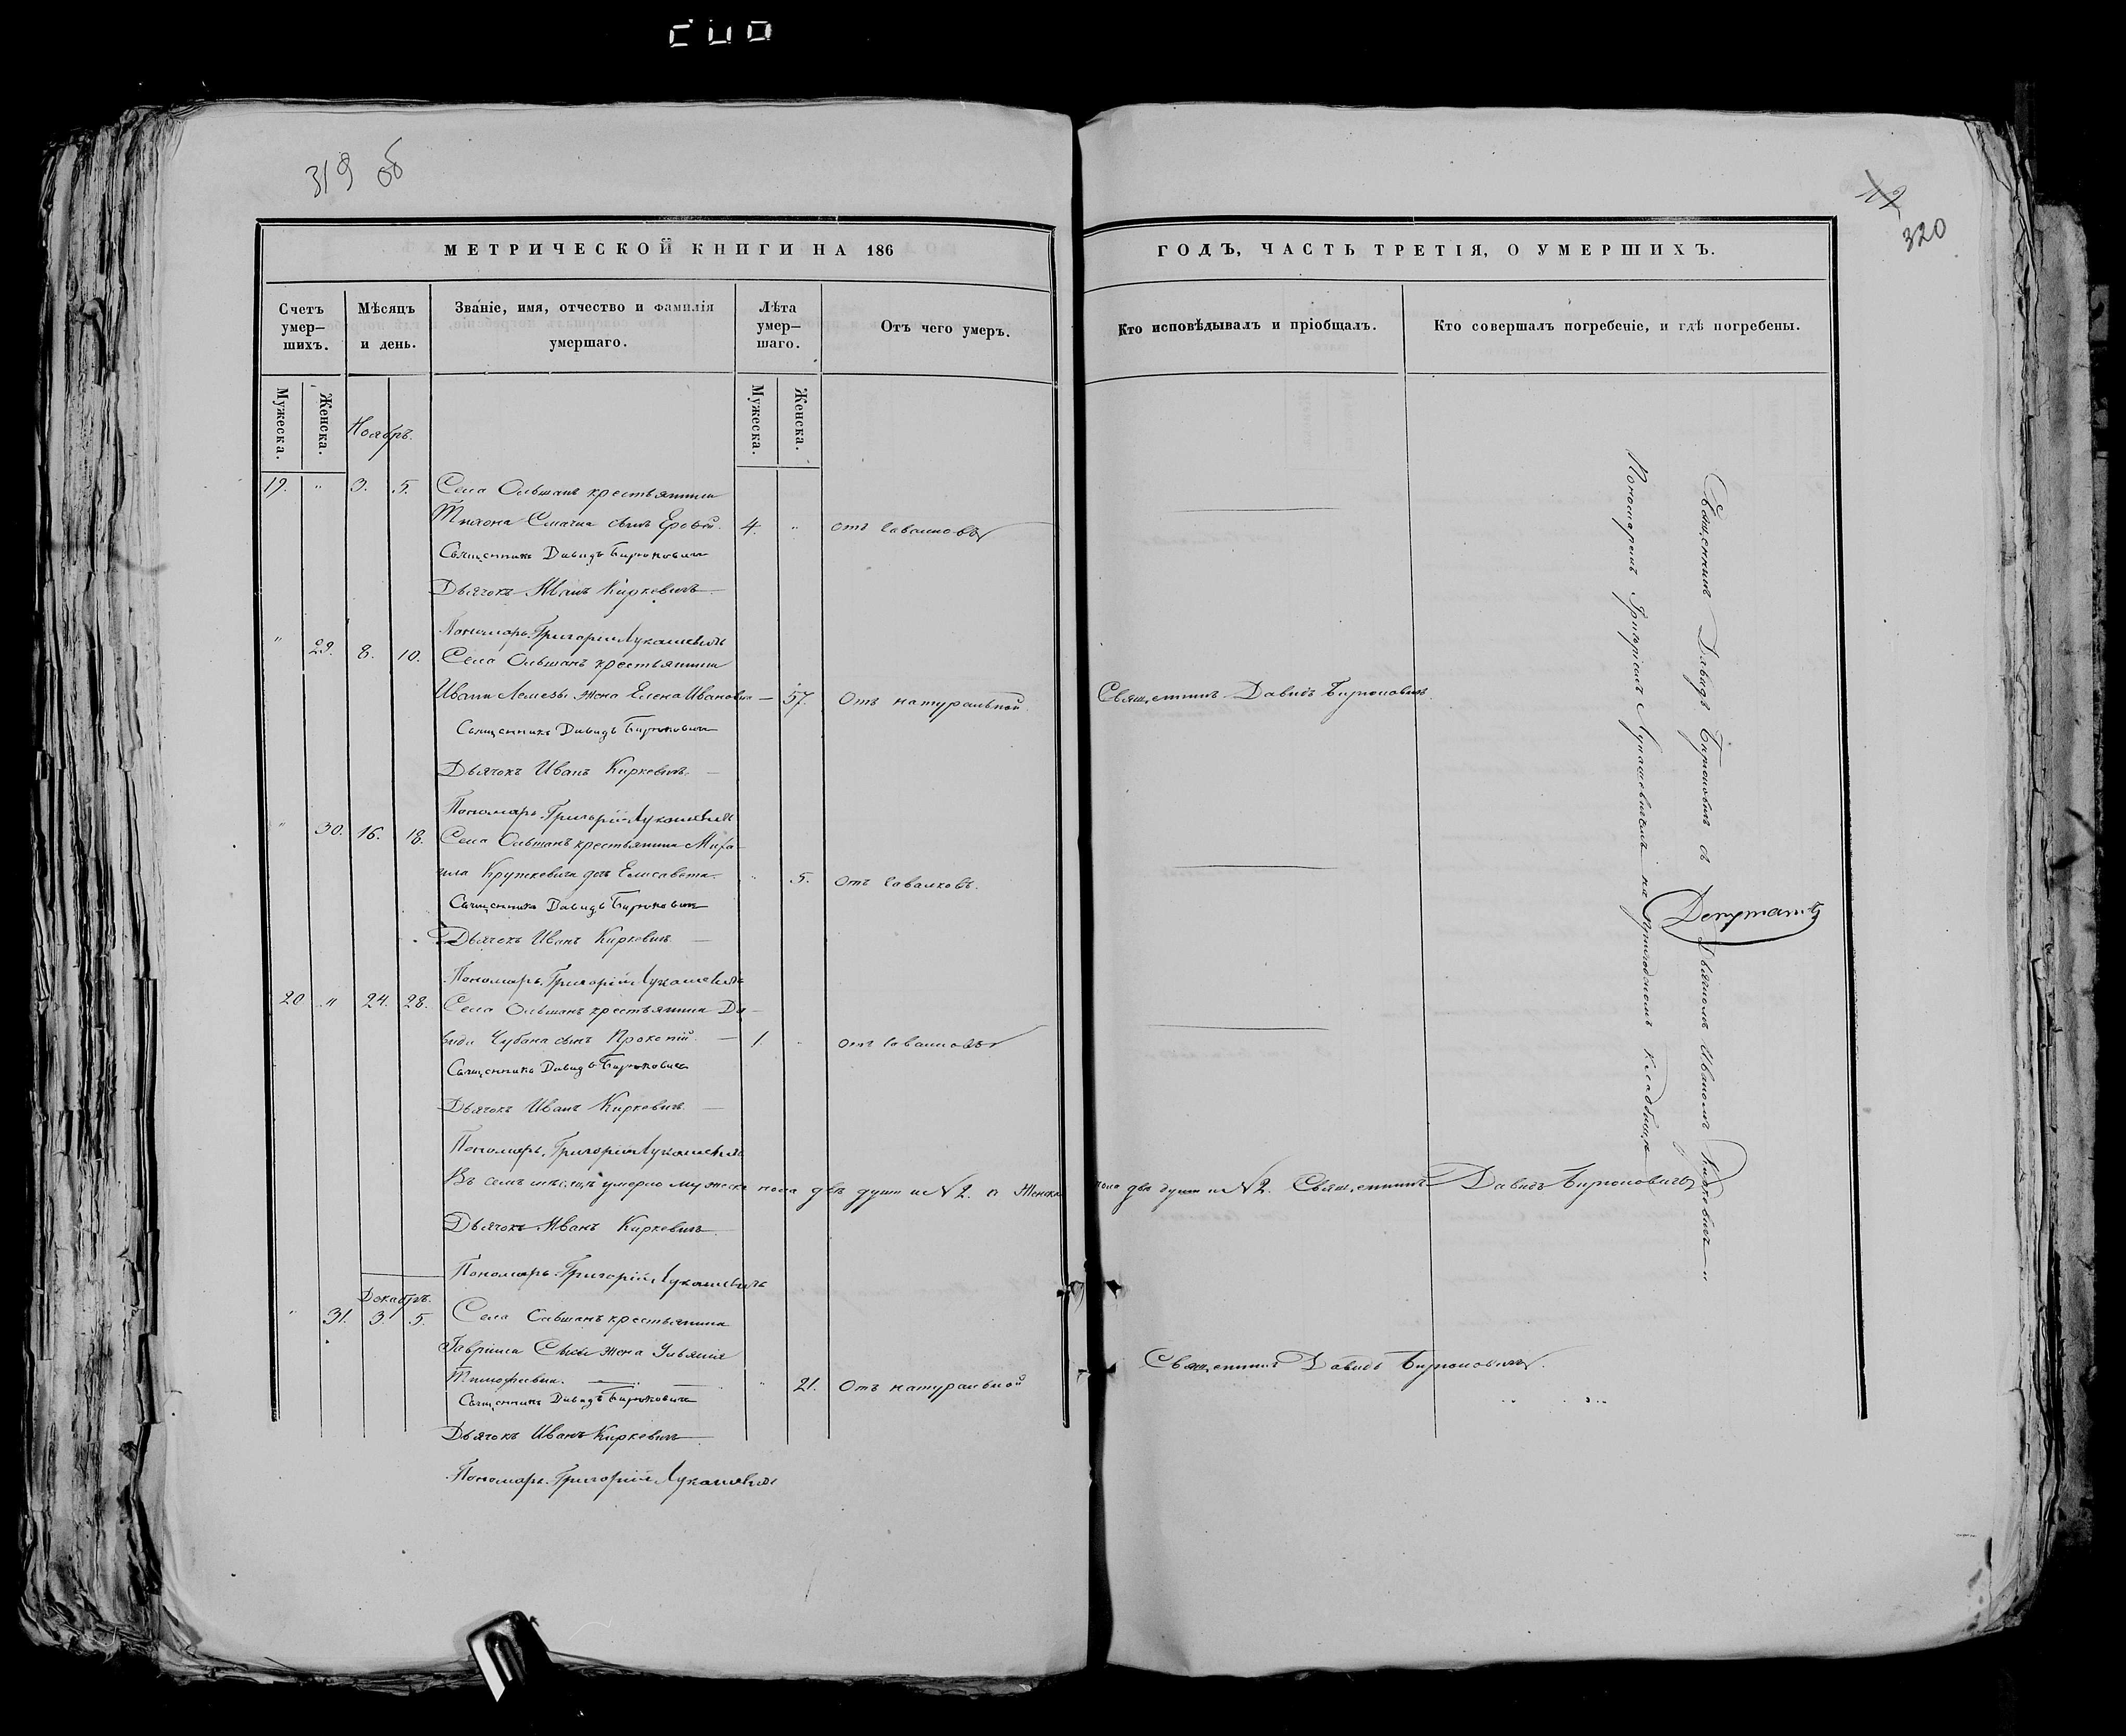 319 об
320
МЕТРИЧЕСКОЙ КНИГИ НА 186
ГОДЪ, ЧАСТЬ ТРЕТІЯ, О УМЕРШИХЪ.
Счетъ умер–шихъ.
Мѣсяцъ и день.
Званіе, имя, отчество и фамилія умершаго.
Лѣта умер–шаго.
Отъ чего умеръ.
Кто исповѣдывалъ и пріобщалъ.
Кто совершалъ погребеніе, и гдѣ погребены.
Мужеска.
Женска.
Мужеска.
Женска.
Ноябрь.
19. " 3. 5. Села Ольшанъ крестьянина
сынъ 4. " отъ
Священникъ Давидъ Бирюковичъ
Дьячокъ Иванъ Киркевичъ
Пономарь Григорій Лукашевичъ
" 29. 8. 10. Села Ольшанъ крестьянина
Ивана жена Елена Иванова — 57. Отъ натуральной Священникъ Давидъ Бирюковичъ
Священникъ Давидъ Бирюковичъ
Дьячокъ Иванъ Киркевичъ
Пономарь Григорій Лукашевичъ
" 30. 16. 18. Села Ольшанъ крестьянина Миха-
ила Круткевича дочь Елисавета. " 5. Отъ
Священникъ Давидъ Бирюковичъ
Дьячокъ Иванъ Киркевичъ
Пономарь Григорій Лукашевичъ
20 " 24. 28. Села Ольшанъ крестьянина Да-
вида Чубана сынъ Прокопій. — 1. " отъ
Священникъ Давидъ Бирюковичъ
Дьячокъ Иванъ Киркевичъ
Пономарь Григорій Лукашевичъ
Въ семъ мѣсяцѣ умерло мужеска пола двѣ души и № 2. а женска пола двѣ души и № 2. Священникъ Давидъ Бирюковичъ
Дьячокъ Иванъ Киркевичъ
Пономарь Григорій Лукашевичъ
Декабрь.
" 31. 3. 5. Села Ольшанъ крестьянина
Гавріила жена
" 21. Отъ натуральной Священникъ Давидъ Бирюковичъ
Священникъ Давидъ Бирюковичъ
Дьячокъ Иванъ Киркевичъ
Пономарь Григорій Лукашевичъ
Священникъ Давидъ Бирюковичъ съ Дьячкомъ Иваномъ Киркевичемъ и
Пономаремъ Григоріемъ Лукашевичемъ на приходскомъ кладбищѣ